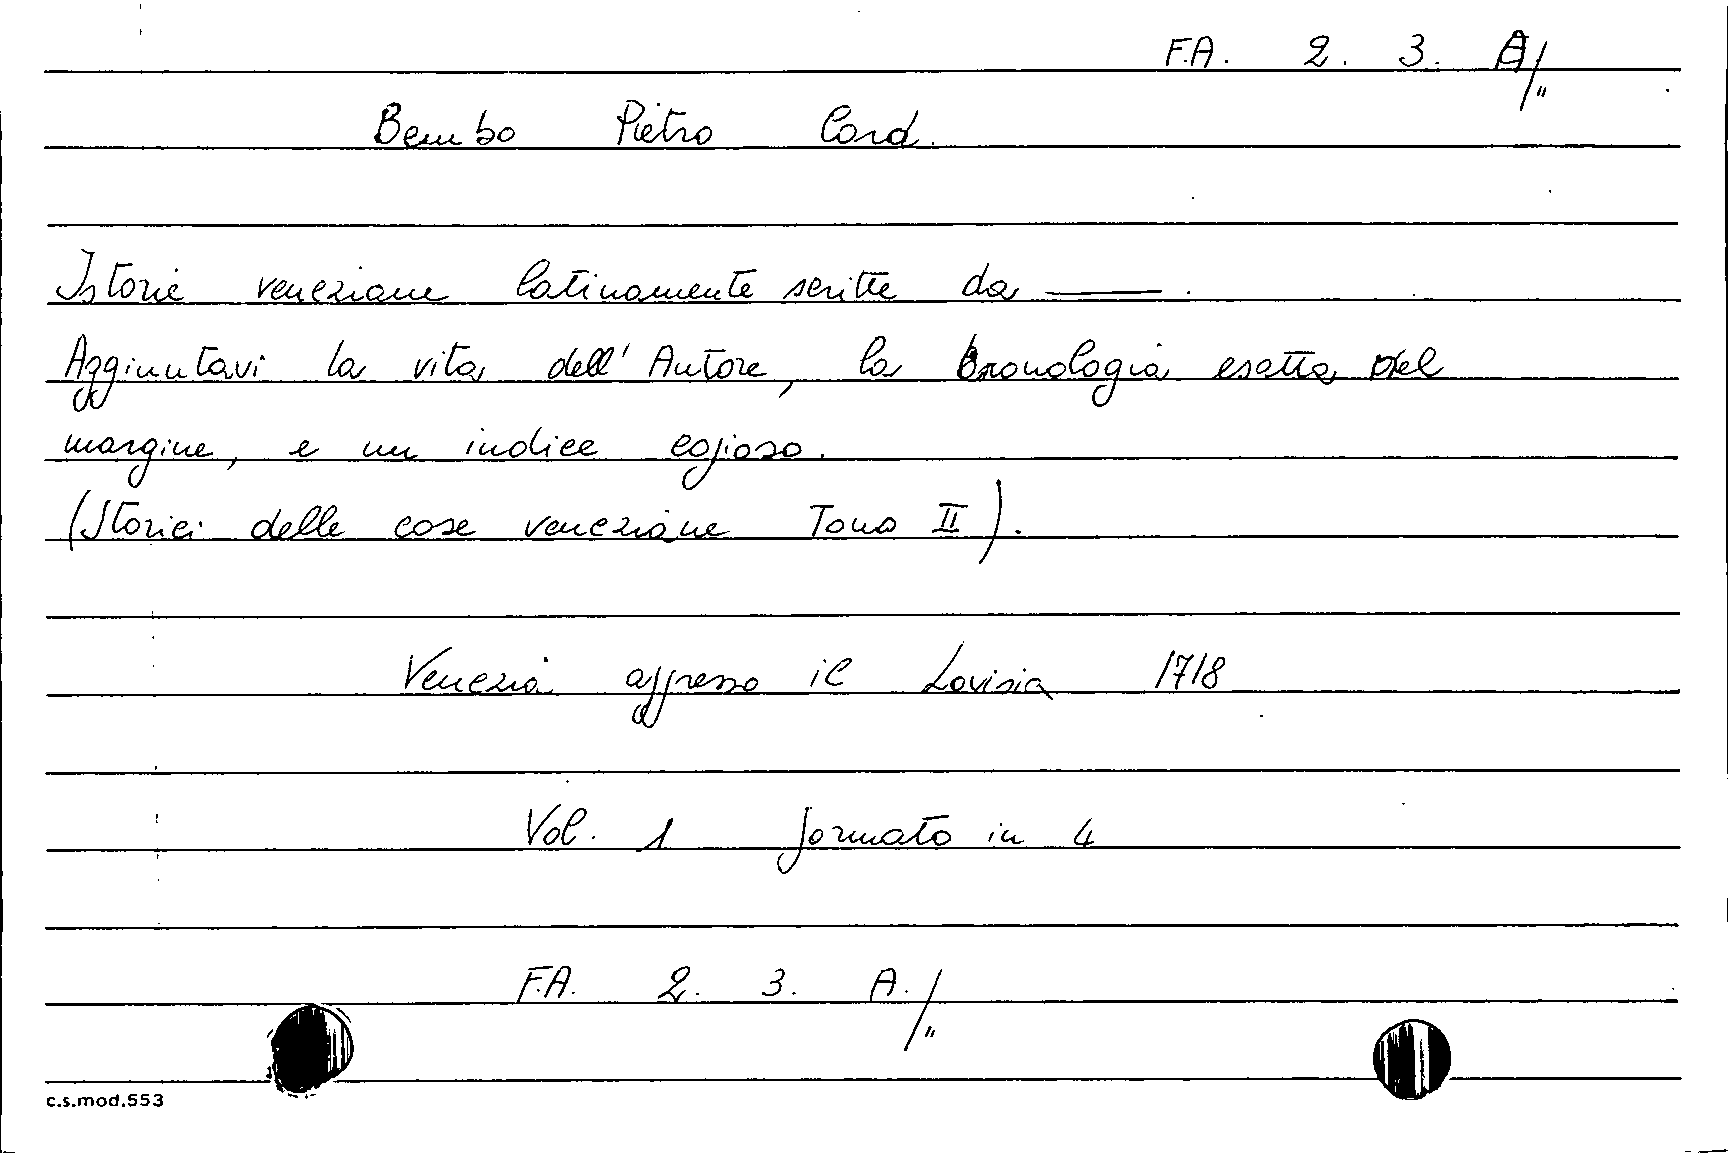 F.A. 2. 3. A/"
Bembo Pietro Card.
Istorie veneziane latinamente scritte da ———.
Aggiuntavi la vita dell' Autore, la cronologia esatta del
margine, e un indice copioso.
(Storici delle cose veneziane Tomo II).
Venezia appresso il Lovisia 1718
Vol. 1 formato in 4
F.A. 2. 3. A./"
c.s.mod.553